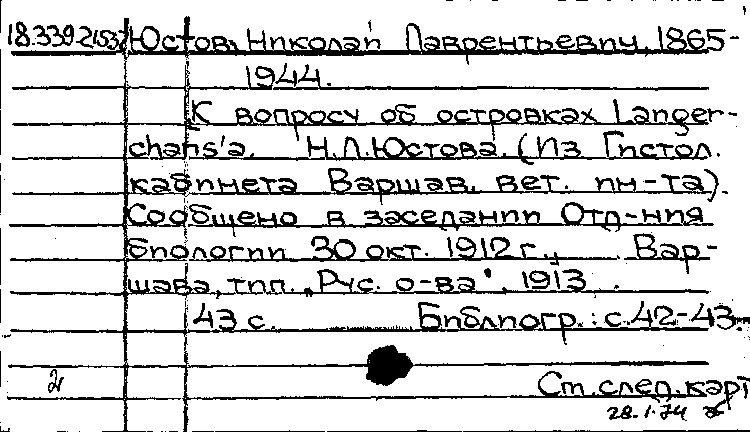 18.339.2153? Юстов, Николай Лаврентьевич, 1865-
1944.
К вопросу об островках Langer-
chans'а. Н.Л.Юстова. (Из Гистол.
кабинета Варшав. вет. ин-та).
Сообщено в заседании Отд-ния
биологии 30 окт. 1912 г., Вар-
шава, тип. „Рус. о-ва", 1913.
43 с. Библиогр.: с.42-43.
2
Ст.след.карт
28.1.74